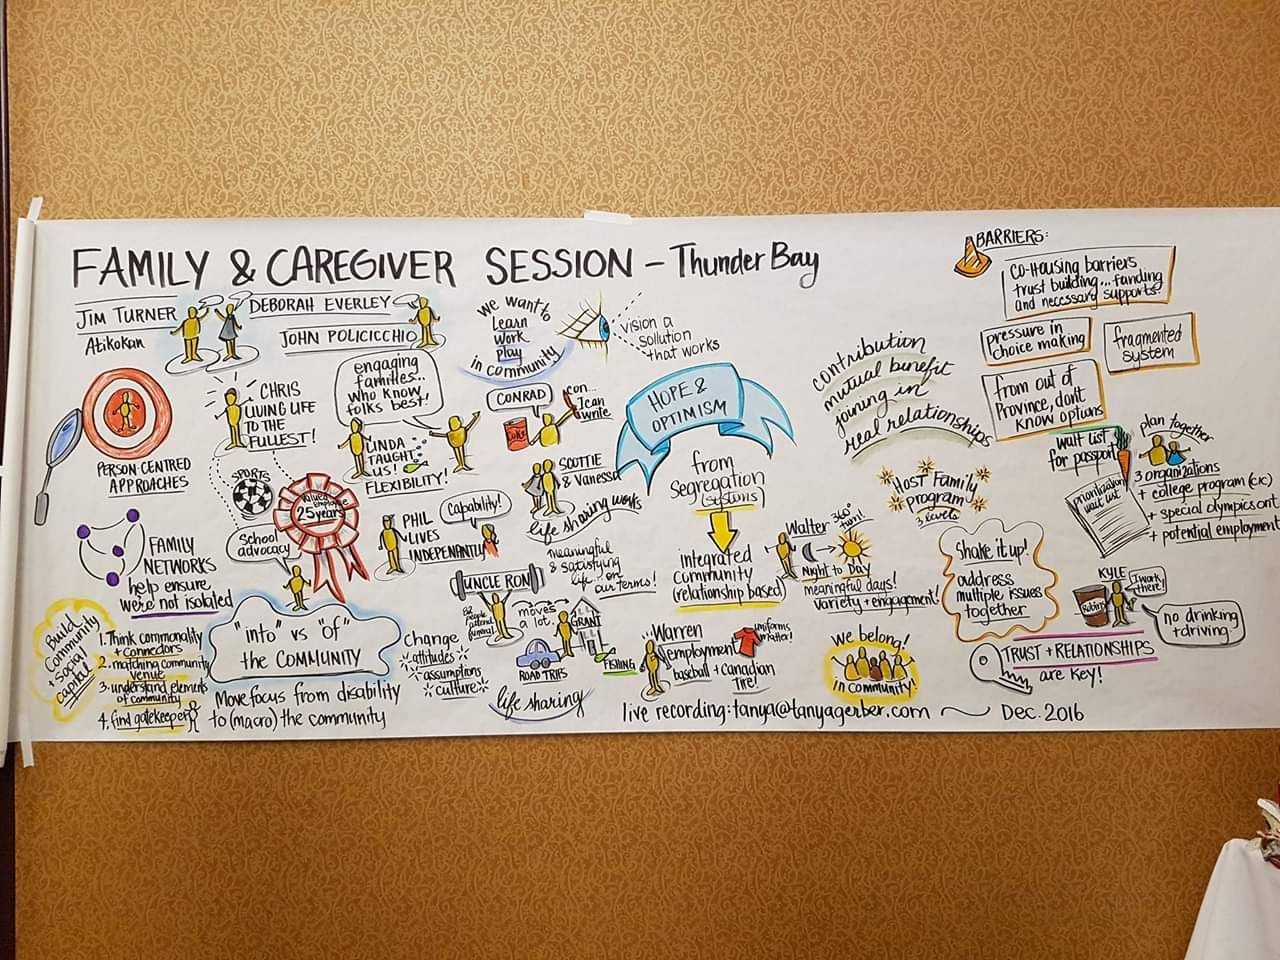 FAMILY & CAREGIVER SESSION – Thunder Bay
JIM TURNER
Atikokan
DEBORAH EVERLEY
JOHN POLICICCHIO
PERSON-CENTRED
APPROACHES
CHRIS
LIVING LIFE
TO THE
FULLEST!
SPORTS
valued
employee
25 years
school
advocacy
engaging
families...
who know
folks best!
LINDA
TAUGHT
US!
FLEXIBILITY!
we want to
Learn
work
play
in community
vision a
sollution
that works
CONRAD
COKE
I can
write
SCOTTIE
& Vanessa
life sharing works
HOPE &
OPTIMISM
from
segregation
(systems)
integrated
community
(relationship based)
contribution
mutual benefit
joining in
real relationships
BARRIERS:
co-Housing barriers
trust building... funding
and necessary supports?
pressure in
choice making
fragmented
system
from out of
Province, dont
know options
wait list
for passport
prioritization
wait list
plan together
3 organizations
+ college program (CICE)
+ special olympics ont
+ potential employment
FAMILY
NETWORKS
help ensure
were not isolated
Build
Community
+ social
capital
1. Think commonality
+ connectors
2. matching community
venue
3. understand elements
of community
4. find gatekeeper
"into" vs "of"
the COMMUNITY
Move focus from disability
to (macro) the community
PHIL
LIVES
INDEPENANTLY
Capability!
UNCLE RON
moves
a lot
GRANT
ROAD TRIPS
FISHING
life sharing
meaningful
& satisfying
life... on
our terms!
change
attitudes
assumptions
culture
Walter
360°
turn!
Night to Day
meaningful days!
variety + engagement!
Warren
employment
baseball + Canadian
Tire!
uniforms
matter!
Host Family
program
3 levels
we belong!
in community!
Shake it up!
address
multiple issues
together
KYLE
I work
there!
Robins
no drinking
+ driving
TRUST + RELATIONSHIPS
are key!
live recording: tanya@tanyagerber.com ~ Dec. 2016